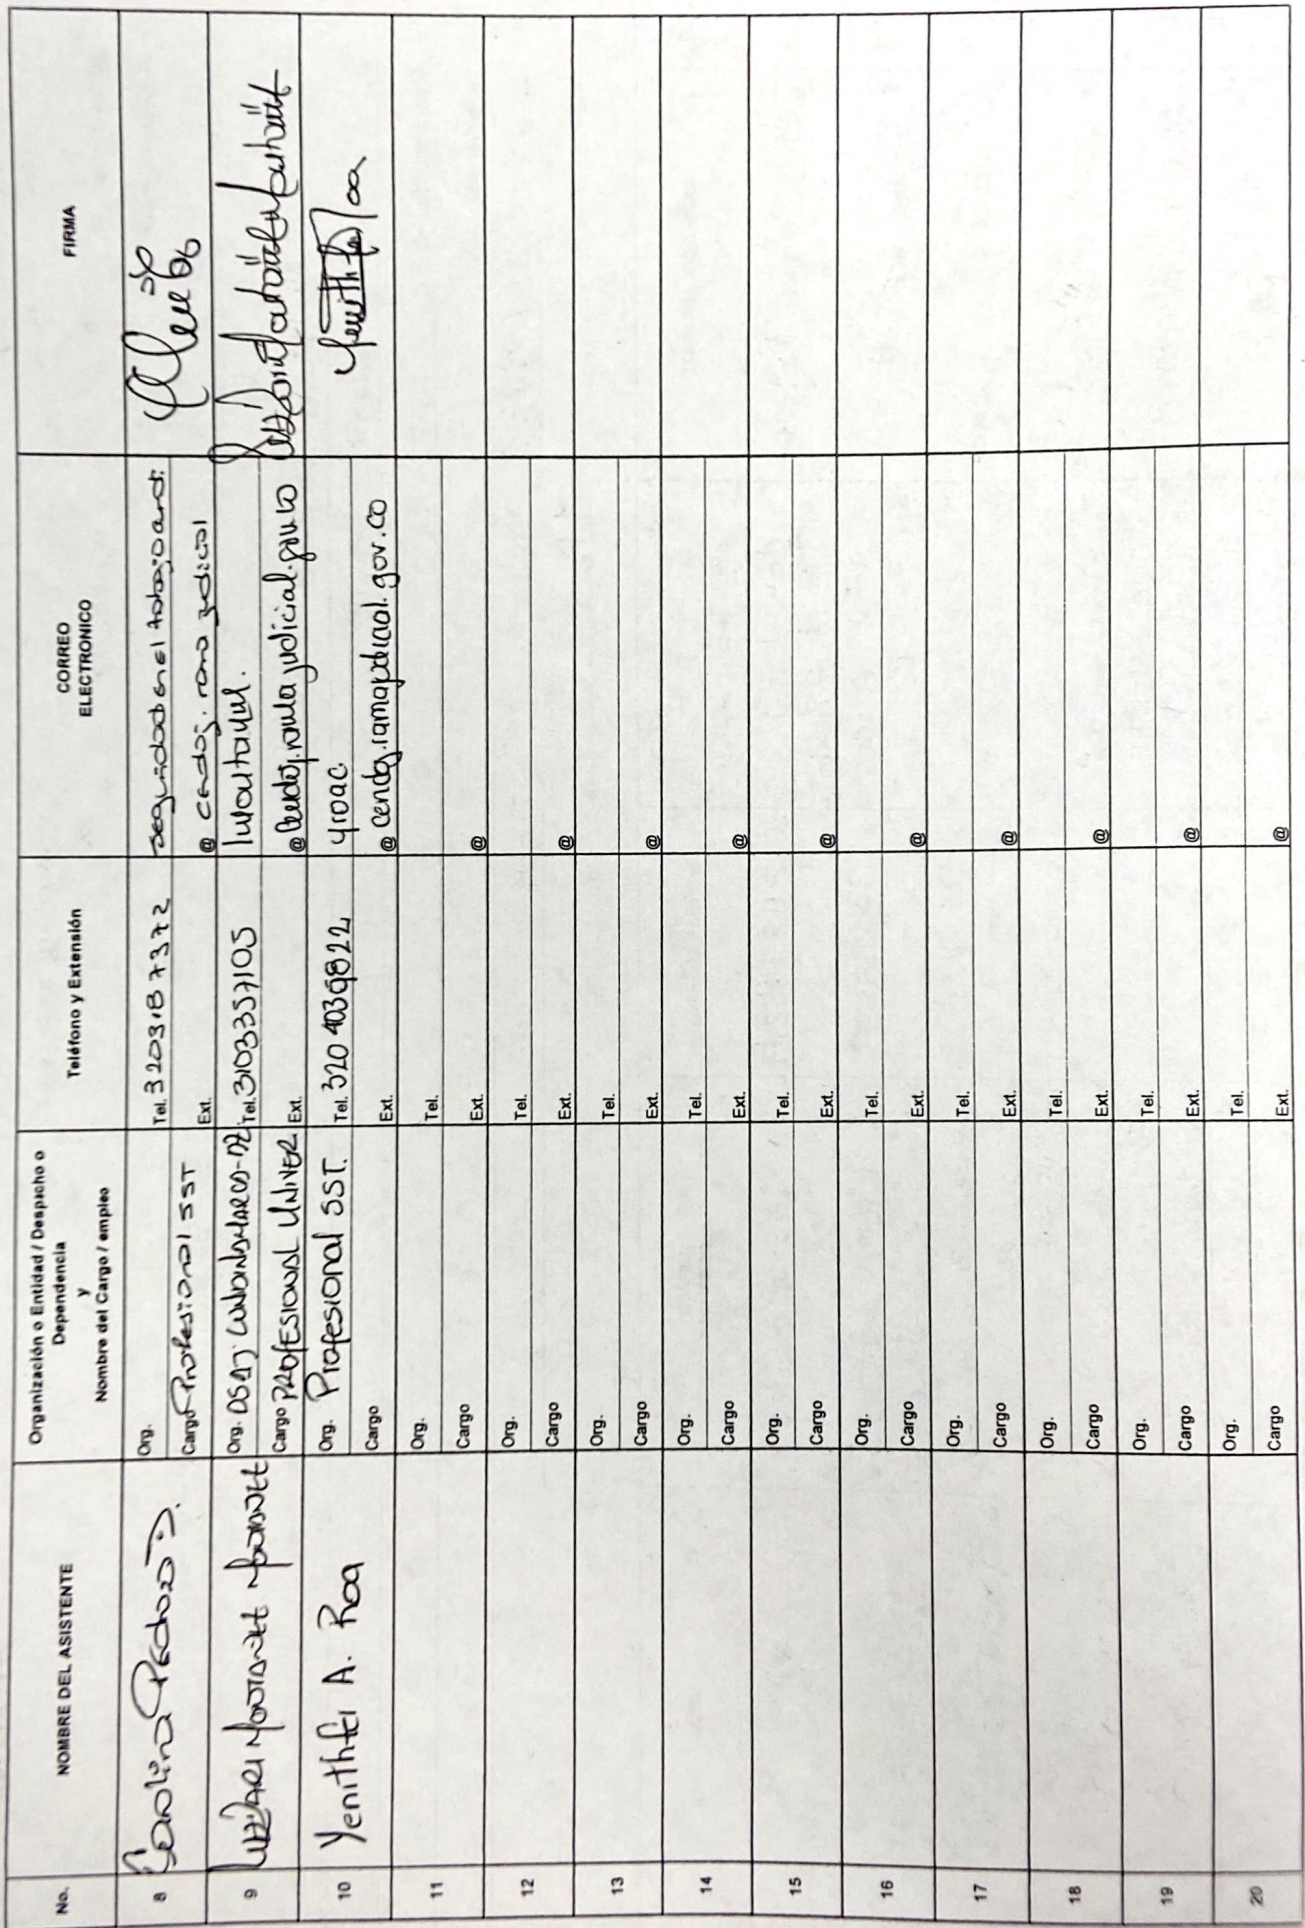 No.
NOMBRE DEL ASISTENTE
Organización o Entidad / Despacho o
Dependencia
y
Nombre del Cargo / empleo
Teléfono y Extensión
CORREO
ELECTRONICO
FIRMA
8
Carolina
Org.
Cargo Profesional SST
Tel. 3203187372
Ext.
@ cendoj.
9
Org. DSAJ. CUNDINAMARCA
Cargo PROFESIONAL UNIVER
Tel. 3103357105
Ext.
@ cendoj.ramajudicial.gov.co
10
Yenithfer A. Roa
Org. Profesional SST.
Cargo
Tel. 320 4036822
Ext.
yroac
@ cendoj.ramajudicial.gov.co
11
Org.
Cargo
Tel.
Ext.
@
12
Org.
Cargo
Tel.
Ext.
@
13
Org.
Cargo
Tel.
Ext.
@
14
Org.
Cargo
Tel.
Ext.
@
15
Org.
Cargo
Tel.
Ext.
@
16
Org.
Cargo
Tel.
Ext.
@
17
Org.
Cargo
Tel.
Ext.
@
18
Org.
Cargo
Tel.
Ext.
@
19
Org.
Cargo
Tel.
Ext.
@
20
Org.
Cargo
Tel.
Ext.
@